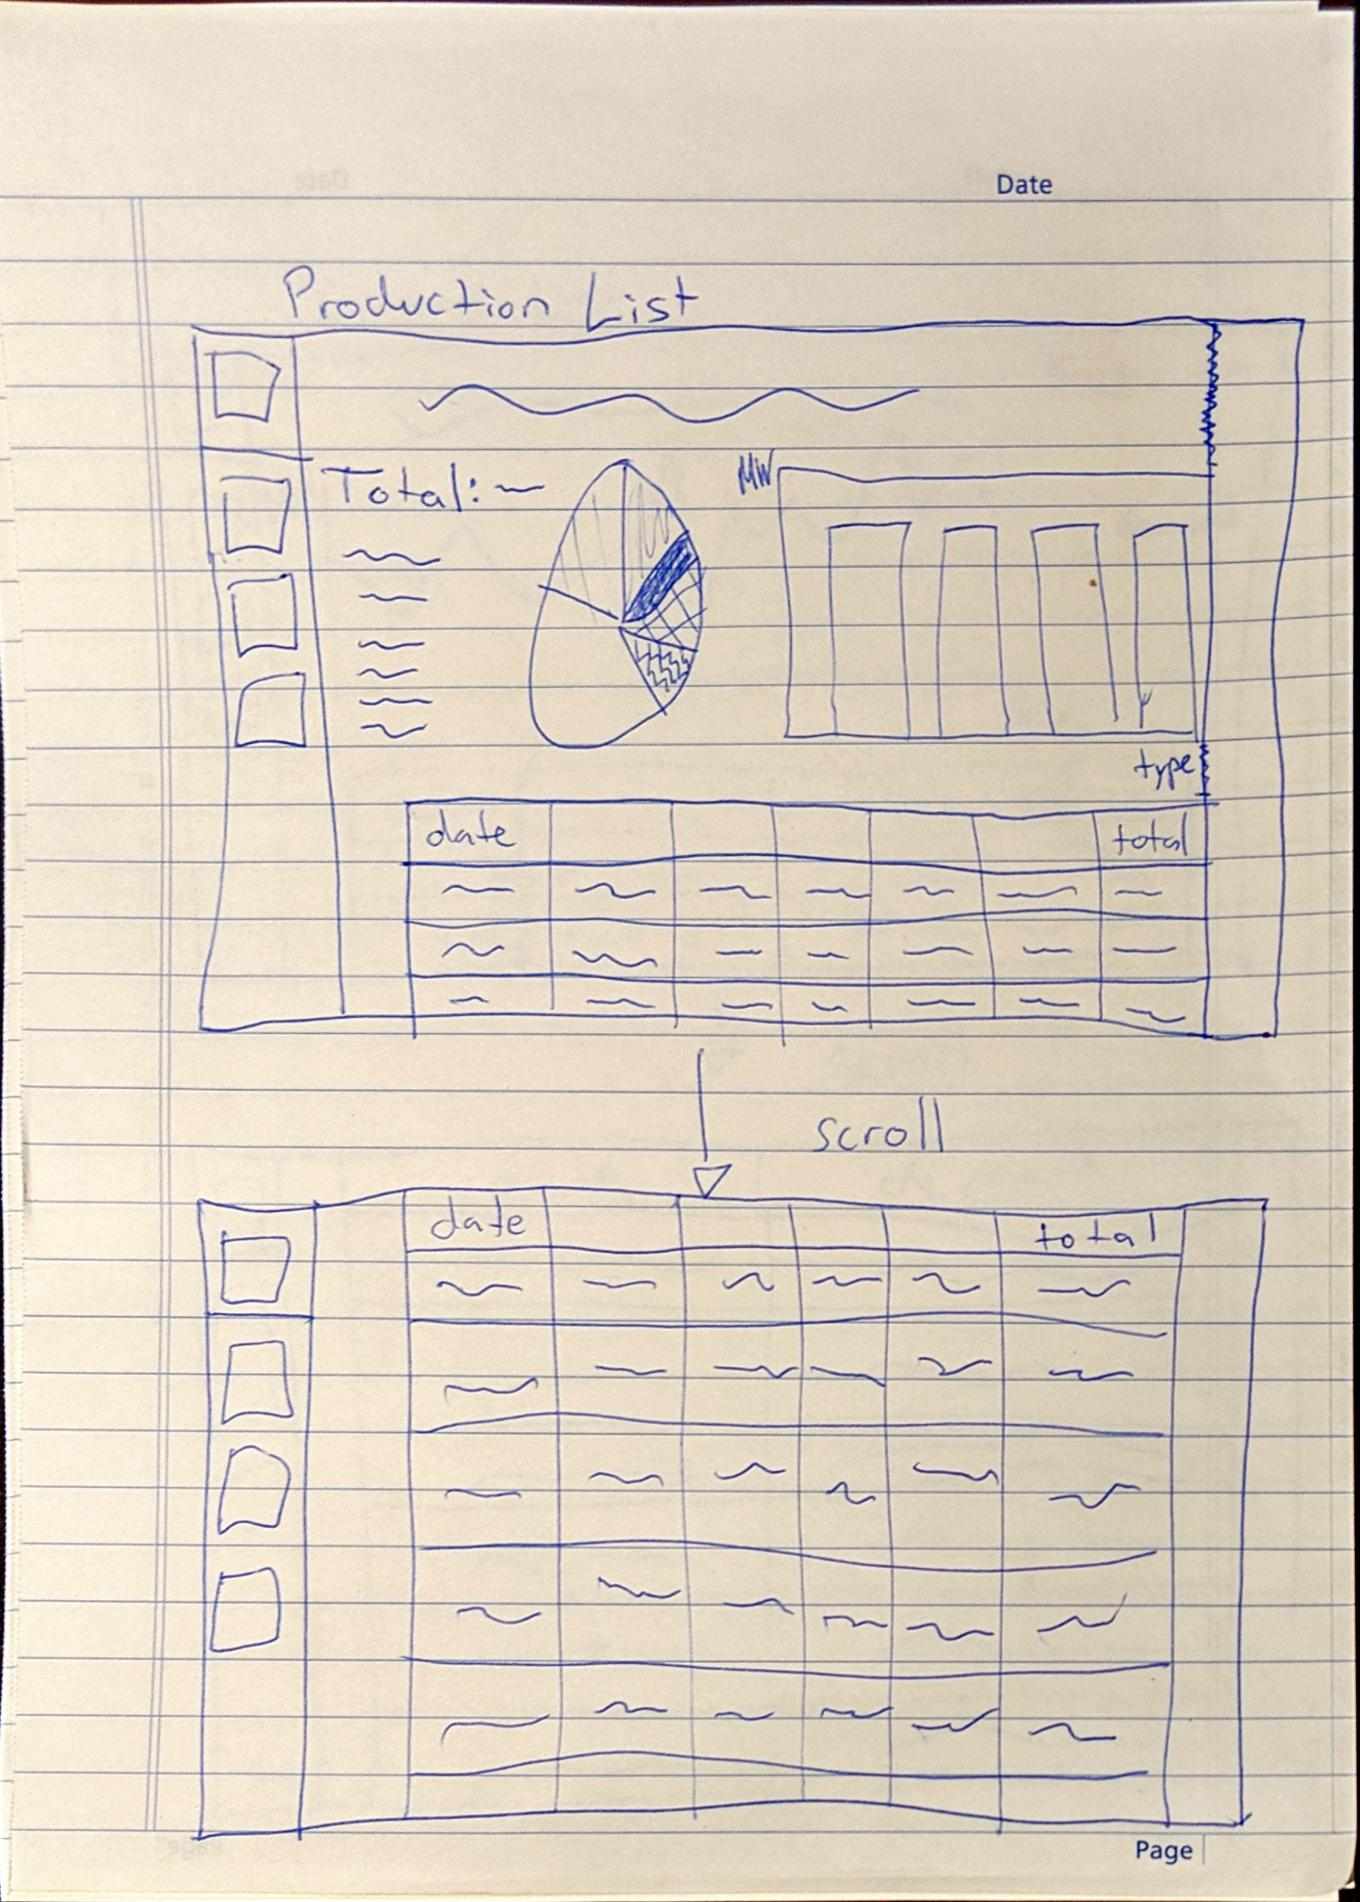 Date
Production List
Total:
MW
type
date total
scroll
date total
Page